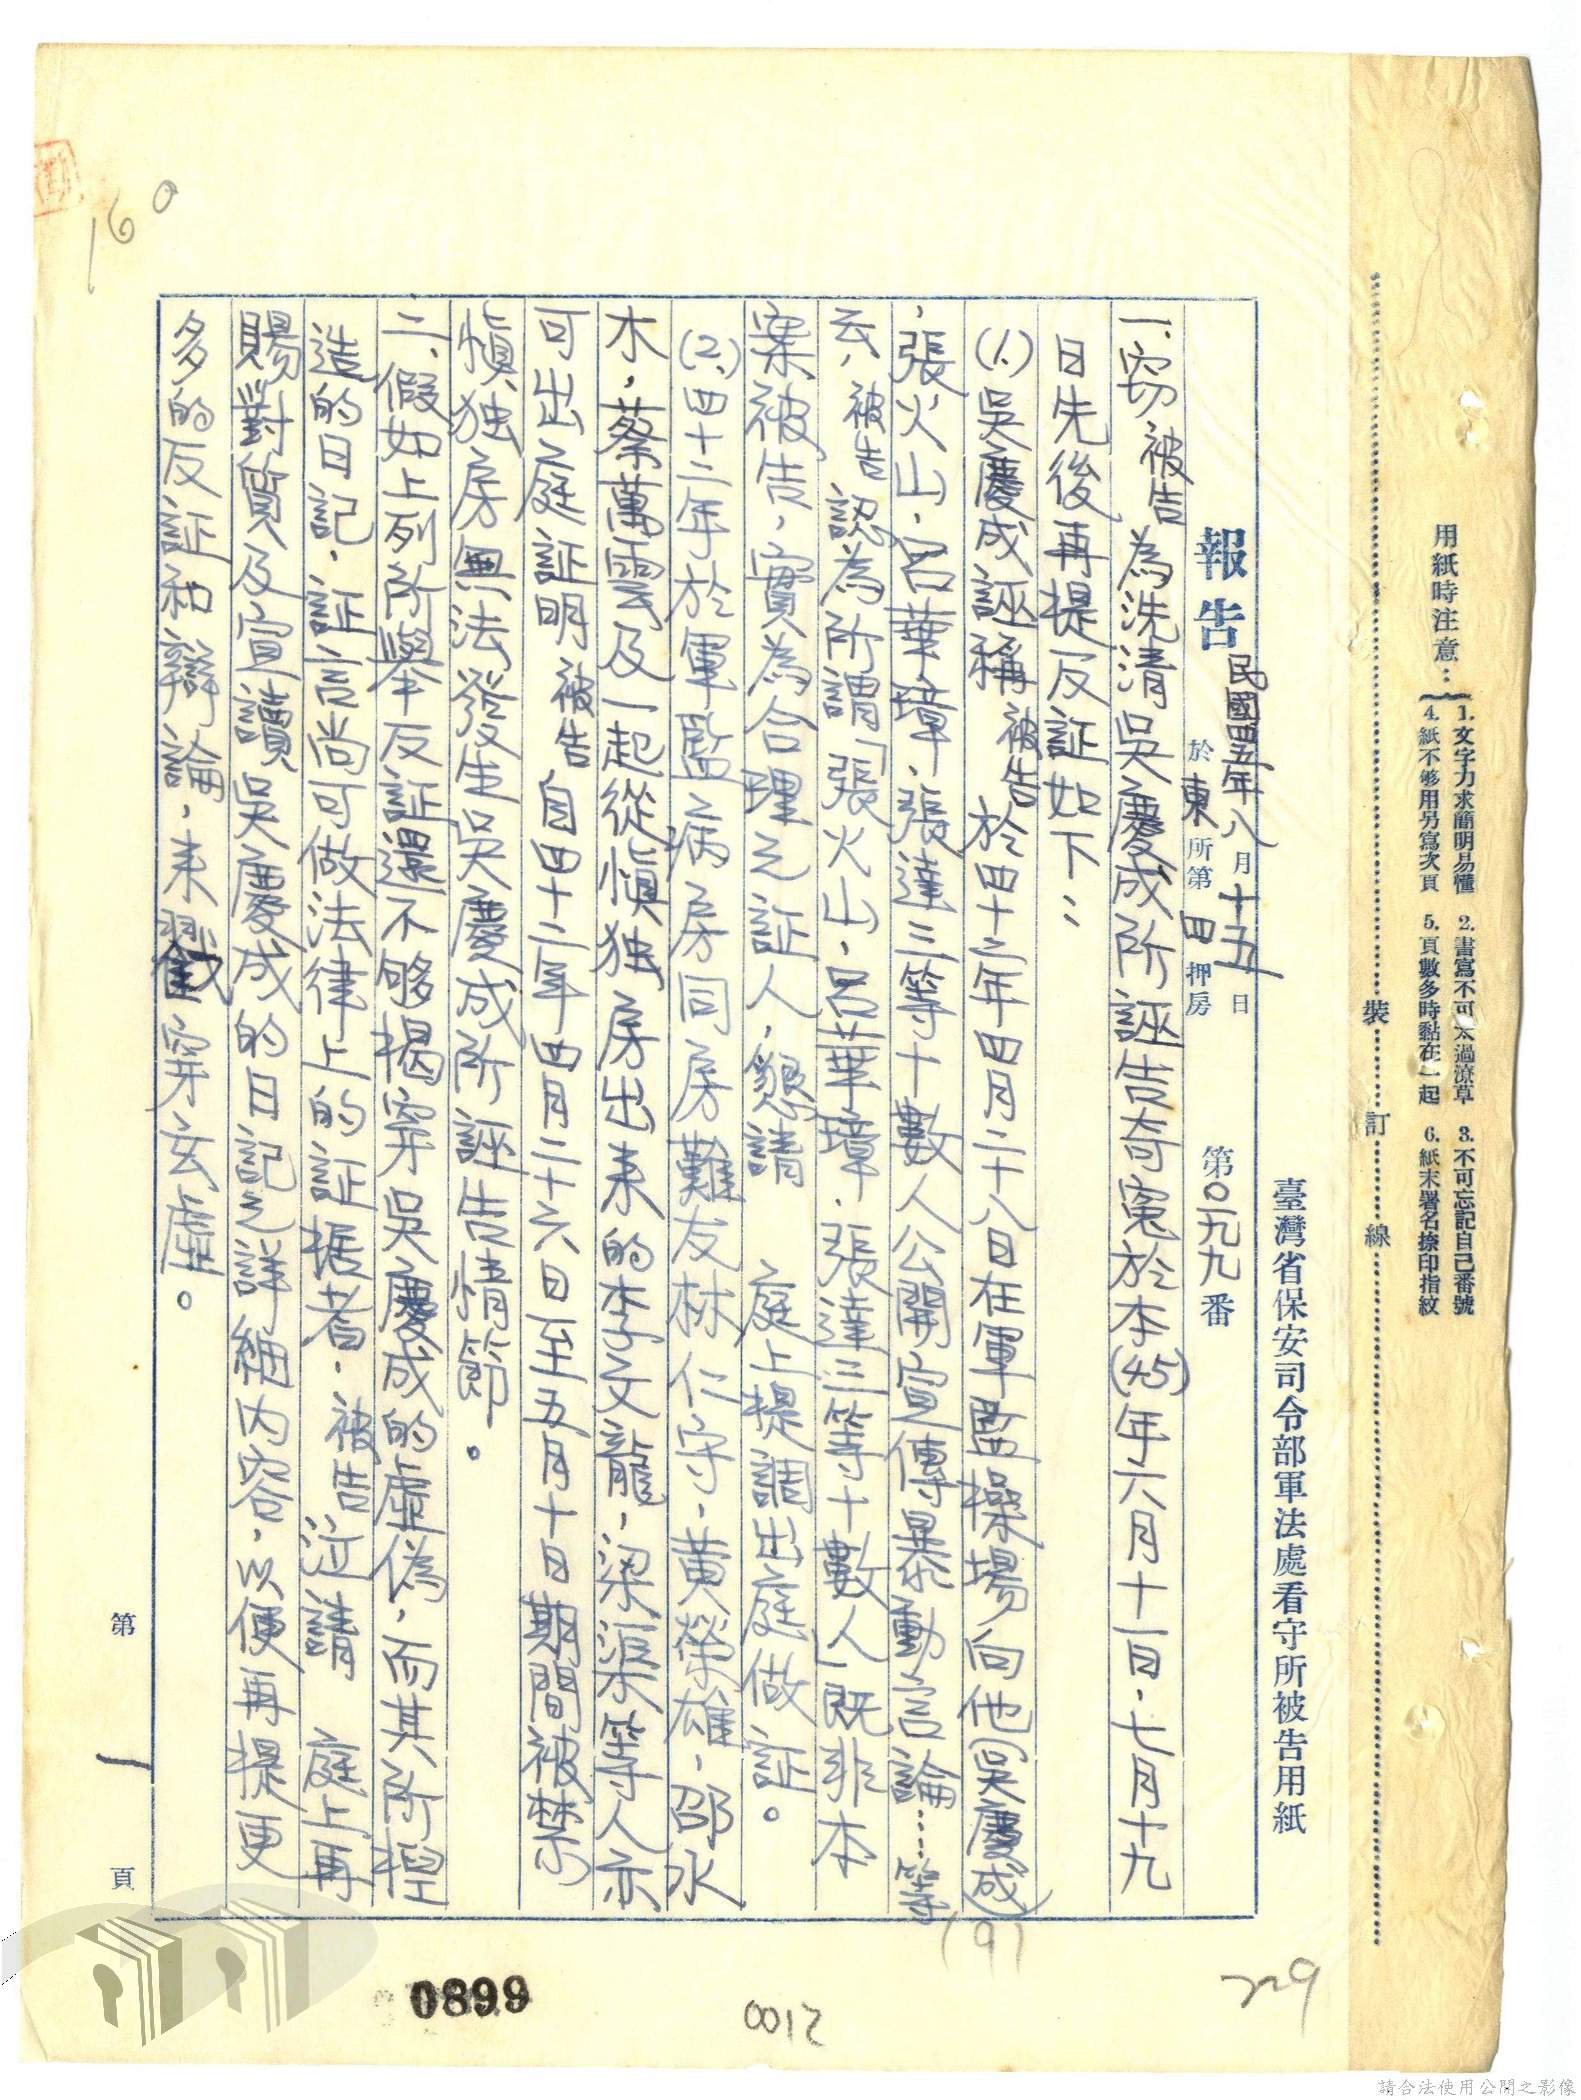 用紙時注意：
1.文字力求簡明易懂 2.書寫不可太過潦草 3.不可忘記自己番號
4.紙不够用另寫次頁 5.頁數多時黏在一起 6.紙末署名捺印指紋
裝訂線
臺灣省保安司令部軍法處看守所被告用紙
報告 民國四五年八月十五日
於東所第四押房 第〇二九九番
一、窃被告為洗清吳慶成所誣告奇寃於本(45)年六月十一日、七月十九
日先後再提反証如下：
(1、)吳慶成誣稱被告於四十二年四月二十八日在軍監操場向他(吳慶成)
，張火山，呂華璋，張達三等十數人公開宣傳暴動言論……等
云、被告認為所謂「張火山，呂華璋，張達三等十數人」既非本
案被告，實為合理之証人，懇請　庭上提調出庭做証。
(2、)四十二年於軍監病房同房難友林仁守，黃榮雄，邵水
木，蔡萬雲及一起從慎独房出来的李文龍，梁渠等人亦
可出庭証明被告自四十二年四月二十六日至五月十日期間被禁
慎独房無法發生吳慶成所誣告情節。
二、假如上列所舉反証還不够揭穿吳慶成的虛偽，而其所揑
造的日記，証言尚可做法律上的証据者，被告泣請　庭上再
賜對質及宣讀吳慶成的日記之詳細內容，以便再提更
多的反証和辯論，来戳穿玄虛。
第一頁
160
(9)
229
0012
0899
請合法使用公開之影像